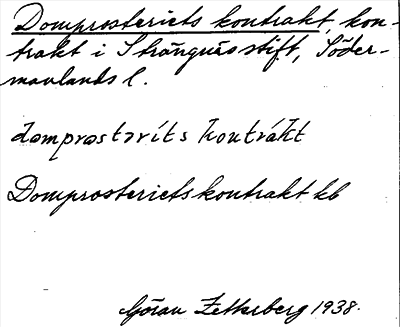 Domprosteriets kontrakt, kon-
trakt i Strängnäs stift, Söder-
manlands l.
dωmprωstəríts kontrákt
Domprosteriets kontrakt kb
Göran Zetterberg 1938.